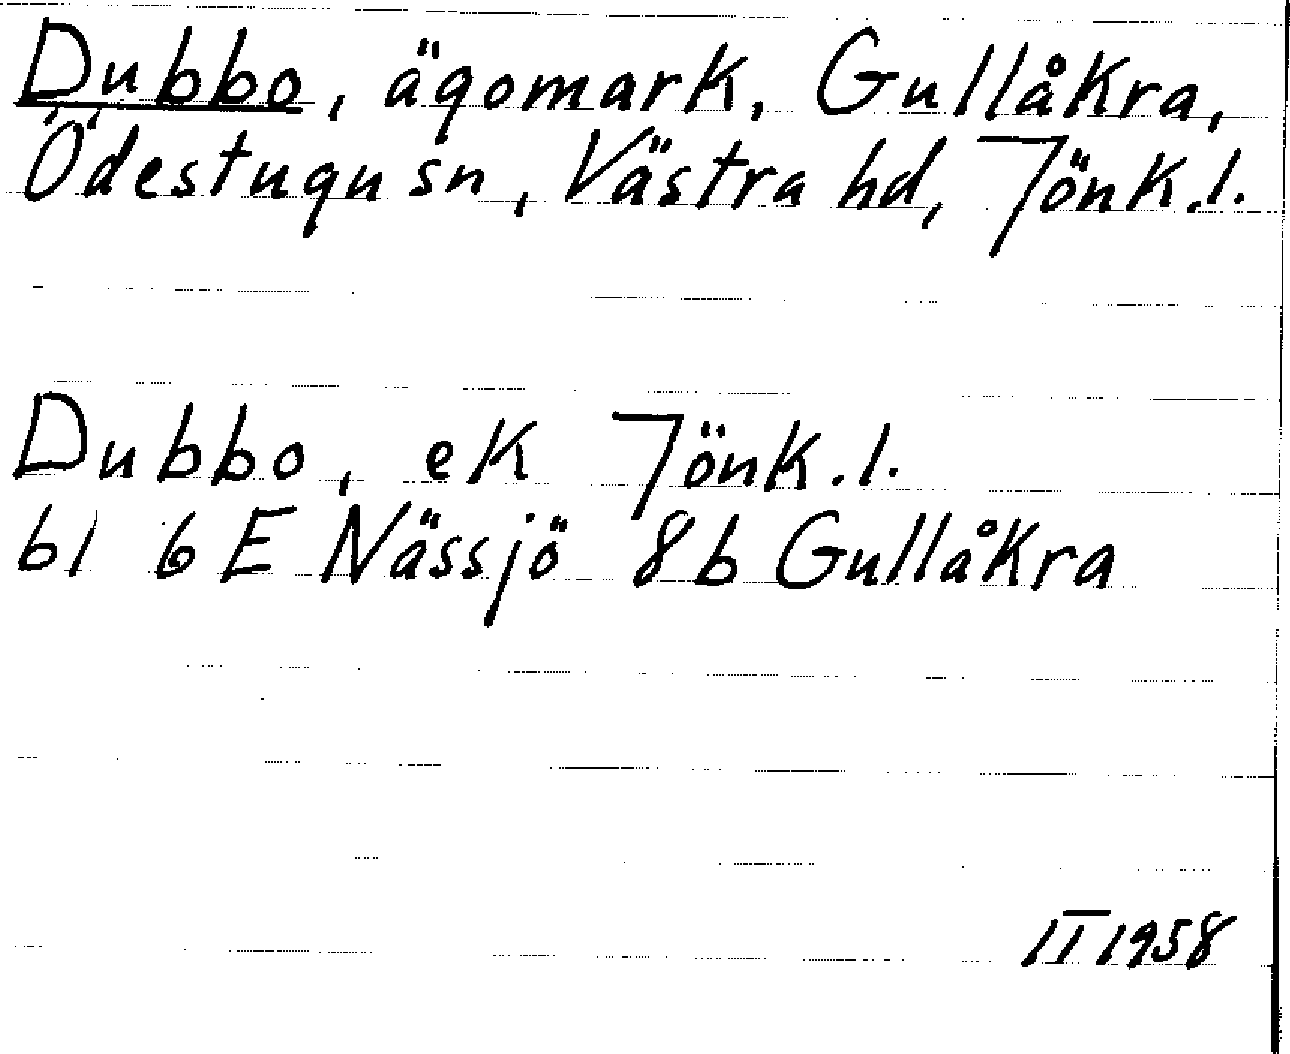 Dubbo, ägomark, Gullåkra,
Ödestugu sn, Västra hd, Jönk.l.
Dubbo, ek Jönk.l.
bl 6 E Nässjö 8b Gullåkra
II 1958